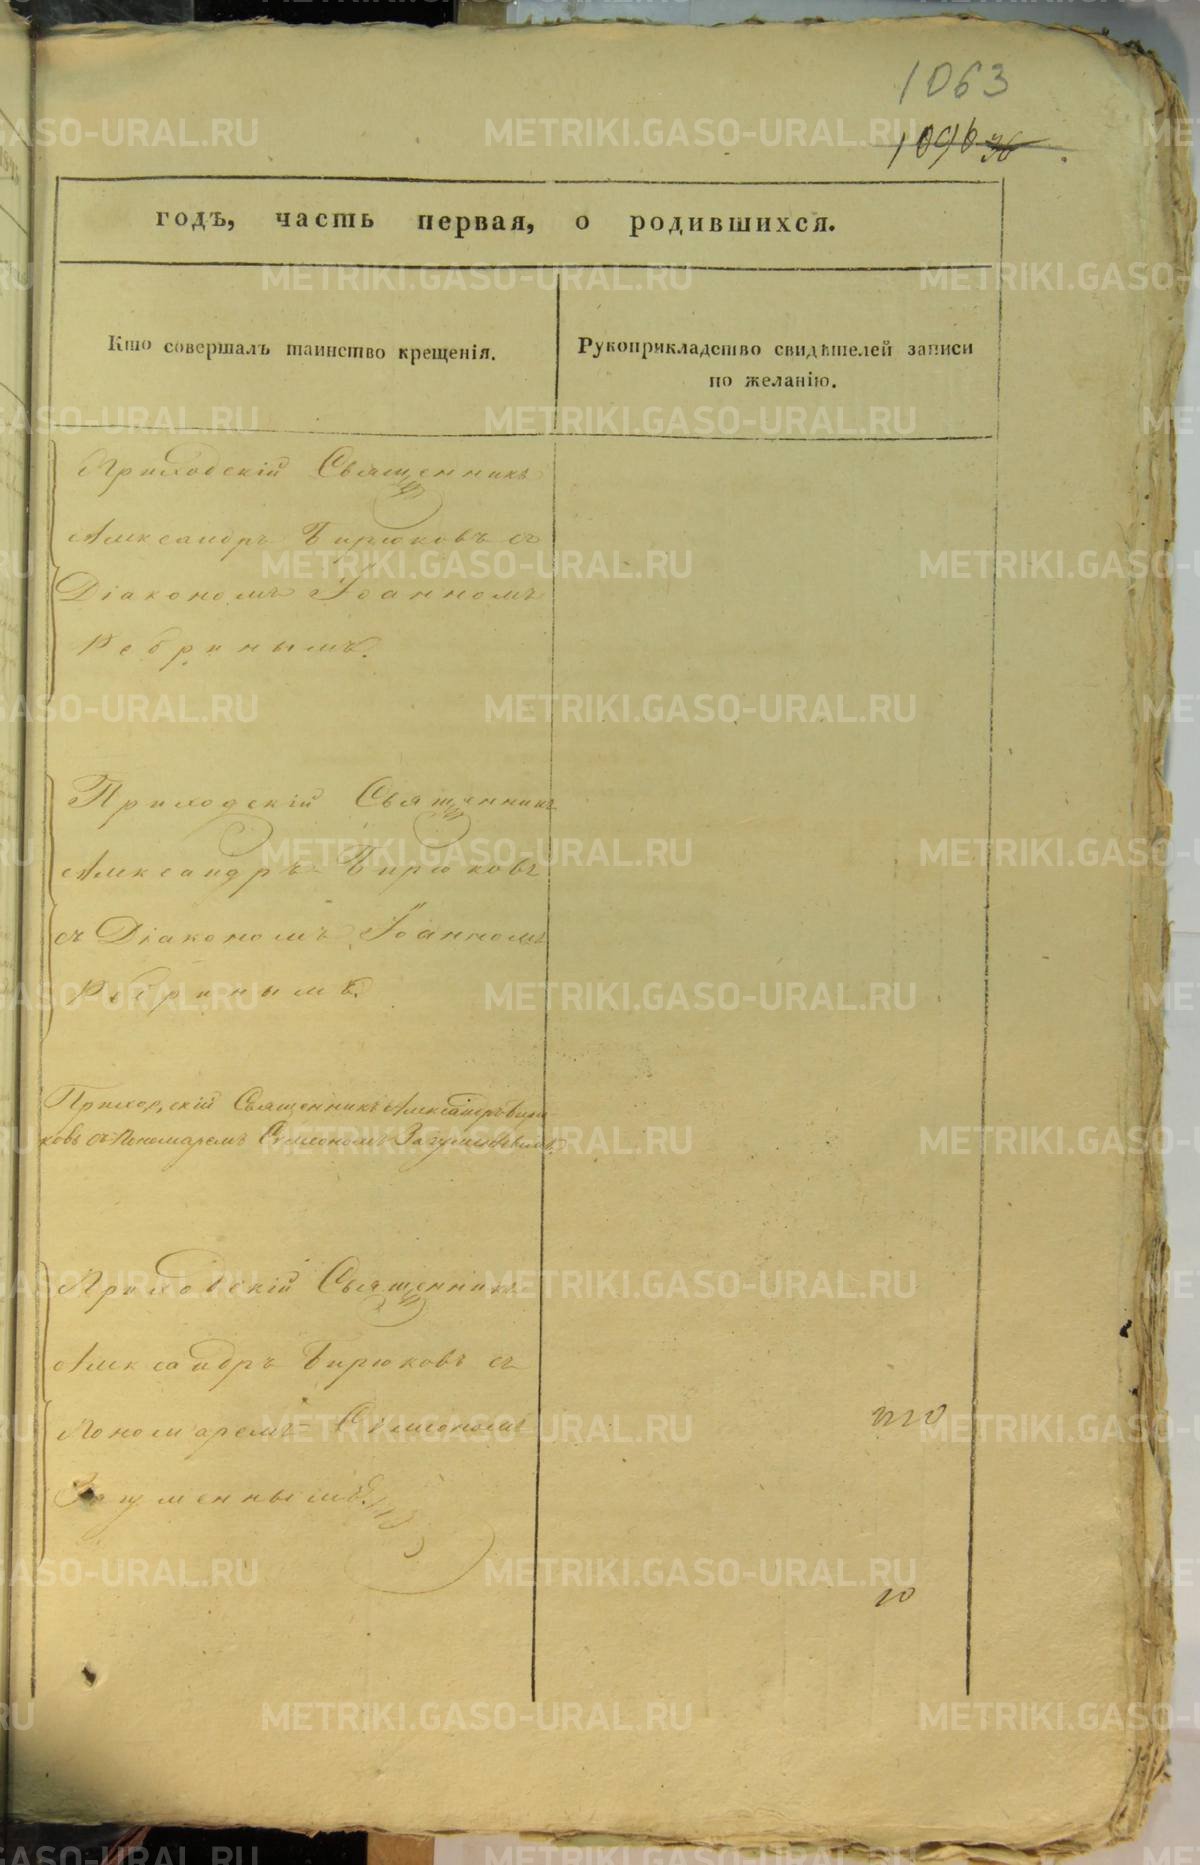 1063
1096 36
годъ, часть первая, о родившихся.
Кто совершалъ таинство крещенія.
Рукоприкладство свидѣтелей записи
по желанію.
Приходскій Священникъ
Александръ Бирюковъ съ
Діакономъ Іоанномъ
Ребринымъ.
Приходскій Священникъ
Александръ Бирюковъ
съ Діакономъ Іоанномъ
Ребринымъ.
Приходскій Священникъ Александръ Бирю
ковъ съ Пономаремъ Симеономъ
Приходскій Священникъ
Александръ Бирюковъ съ
Пономаремъ Симеономъ
Загуменнымъ.
METRIKI.GASO-URAL.RU